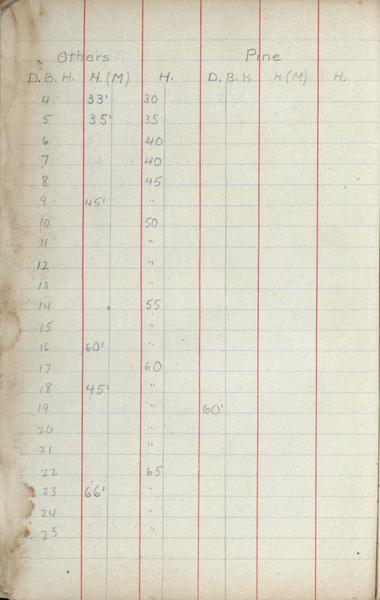 Others Pine
D. B. H. H. (M) H. D. B. H. H (M) H.
4 33' 30
5 35' 35
6 40
7 40
8 45
9 45' "
10 50
11 "
12 "
13 "
14 55
15 "
16 60' "
17 60
18 45' "
19 " 60'
20 "
21 "
22 65
23 66' "
24 "
25 "